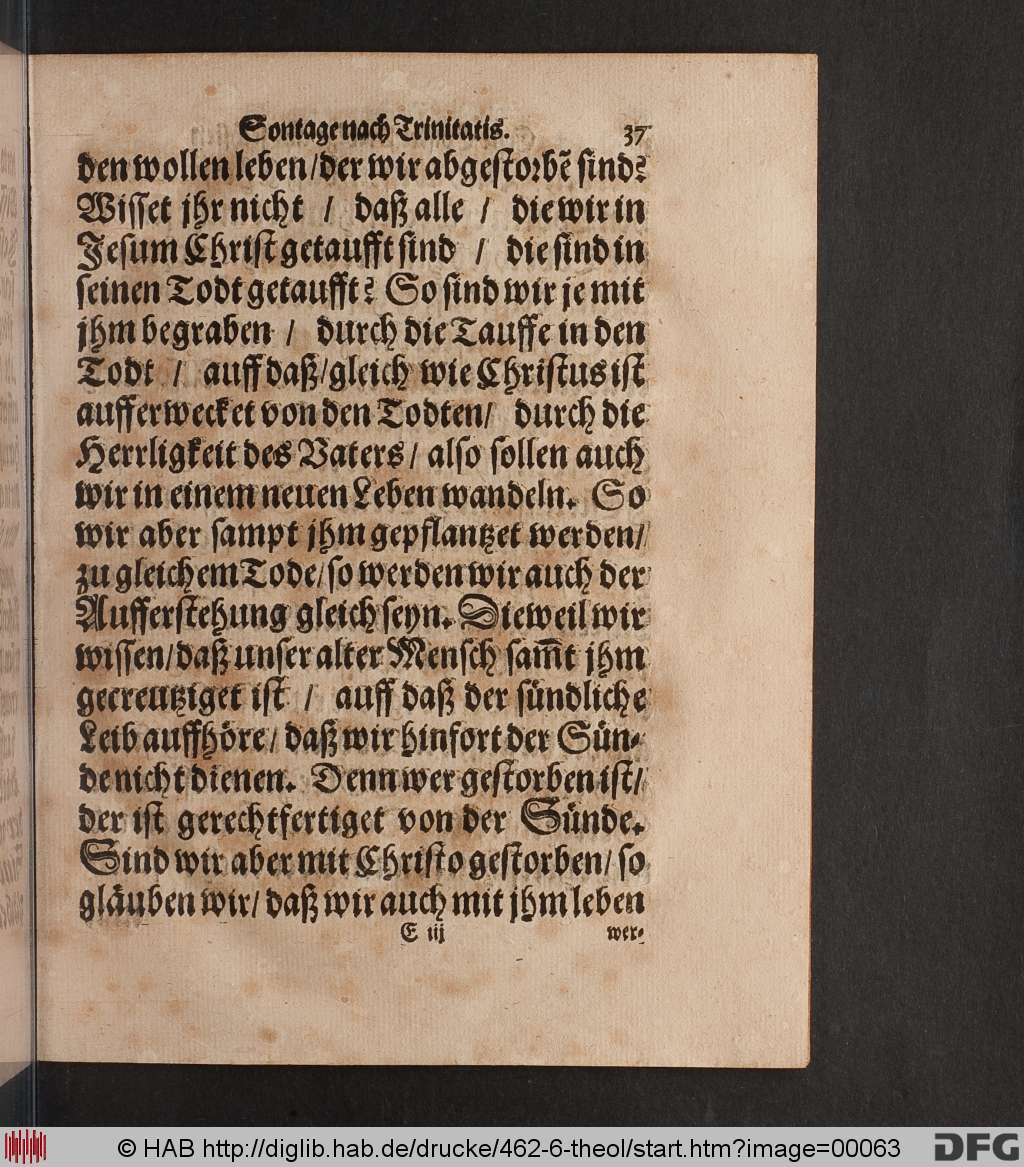 Sontage nach Trinitatis. 37
den wollen leben / der wir abgestorbẽ sind?
Wisset jhr nicht / daß alle / die wir in
Jesum Christ getaufft sind / die sind in
seinen Todt getaufft? So sind wir je mit
jhm begraben / durch die Tauffe in den
Todt / auff daß / gleich wie Christus ist
aufferwecket von den Todten / durch die
Herrligkeit des Vaters / also sollen auch
wir in einem neuen Leben wandeln. So
wir aber sampt jhm gepflantzet werden /
zu gleichem Tode / so werden wir auch der
Aufferstehung gleich seyn. Dieweil wir
wissen / daß unser alter Mensch sam̃t jhm
gecreutziget ist / auff daß der sündliche
Leib auffhöre / daß wir hinfort der Sün-
de nicht dienen. Denn wer gestorben ist /
der ist gerechtfertiget von der Sünde.
Sind wir aber mit Christo gestorben / so
gläuben wir / daß wir auch mit jhm leben
E iij wer-
© HAB http://diglib.hab.de/drucke/462-6-theol/start.htm?image=00063 DFG